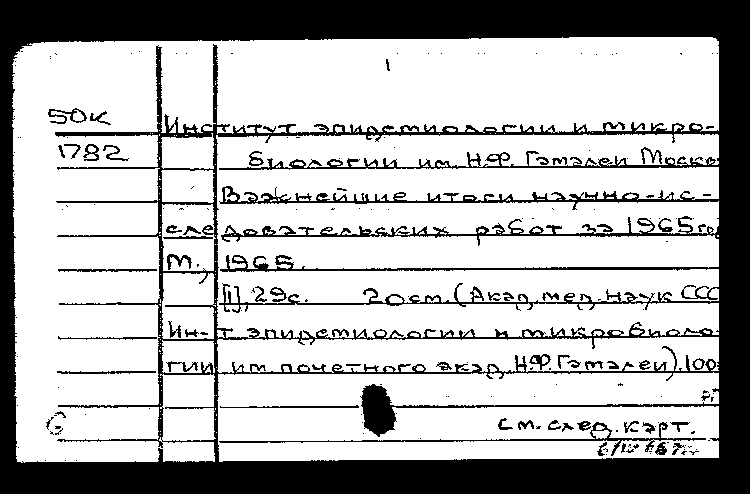 1
50к
Институт эпидемиологии и микро-
1782
биологии им. Н.Ф. Гамалеи Моск
Важнейшие итоги научно-ис-
следовательских работ за 1965 го
М., 1965.
[1], 29с. 20 см. (Акад. мед. наук ССС
Ин-т эпидемиологии и микробиоло
гии им. почетного акад. Н.Ф. Гамалеи). 100
G
см. след. карт.